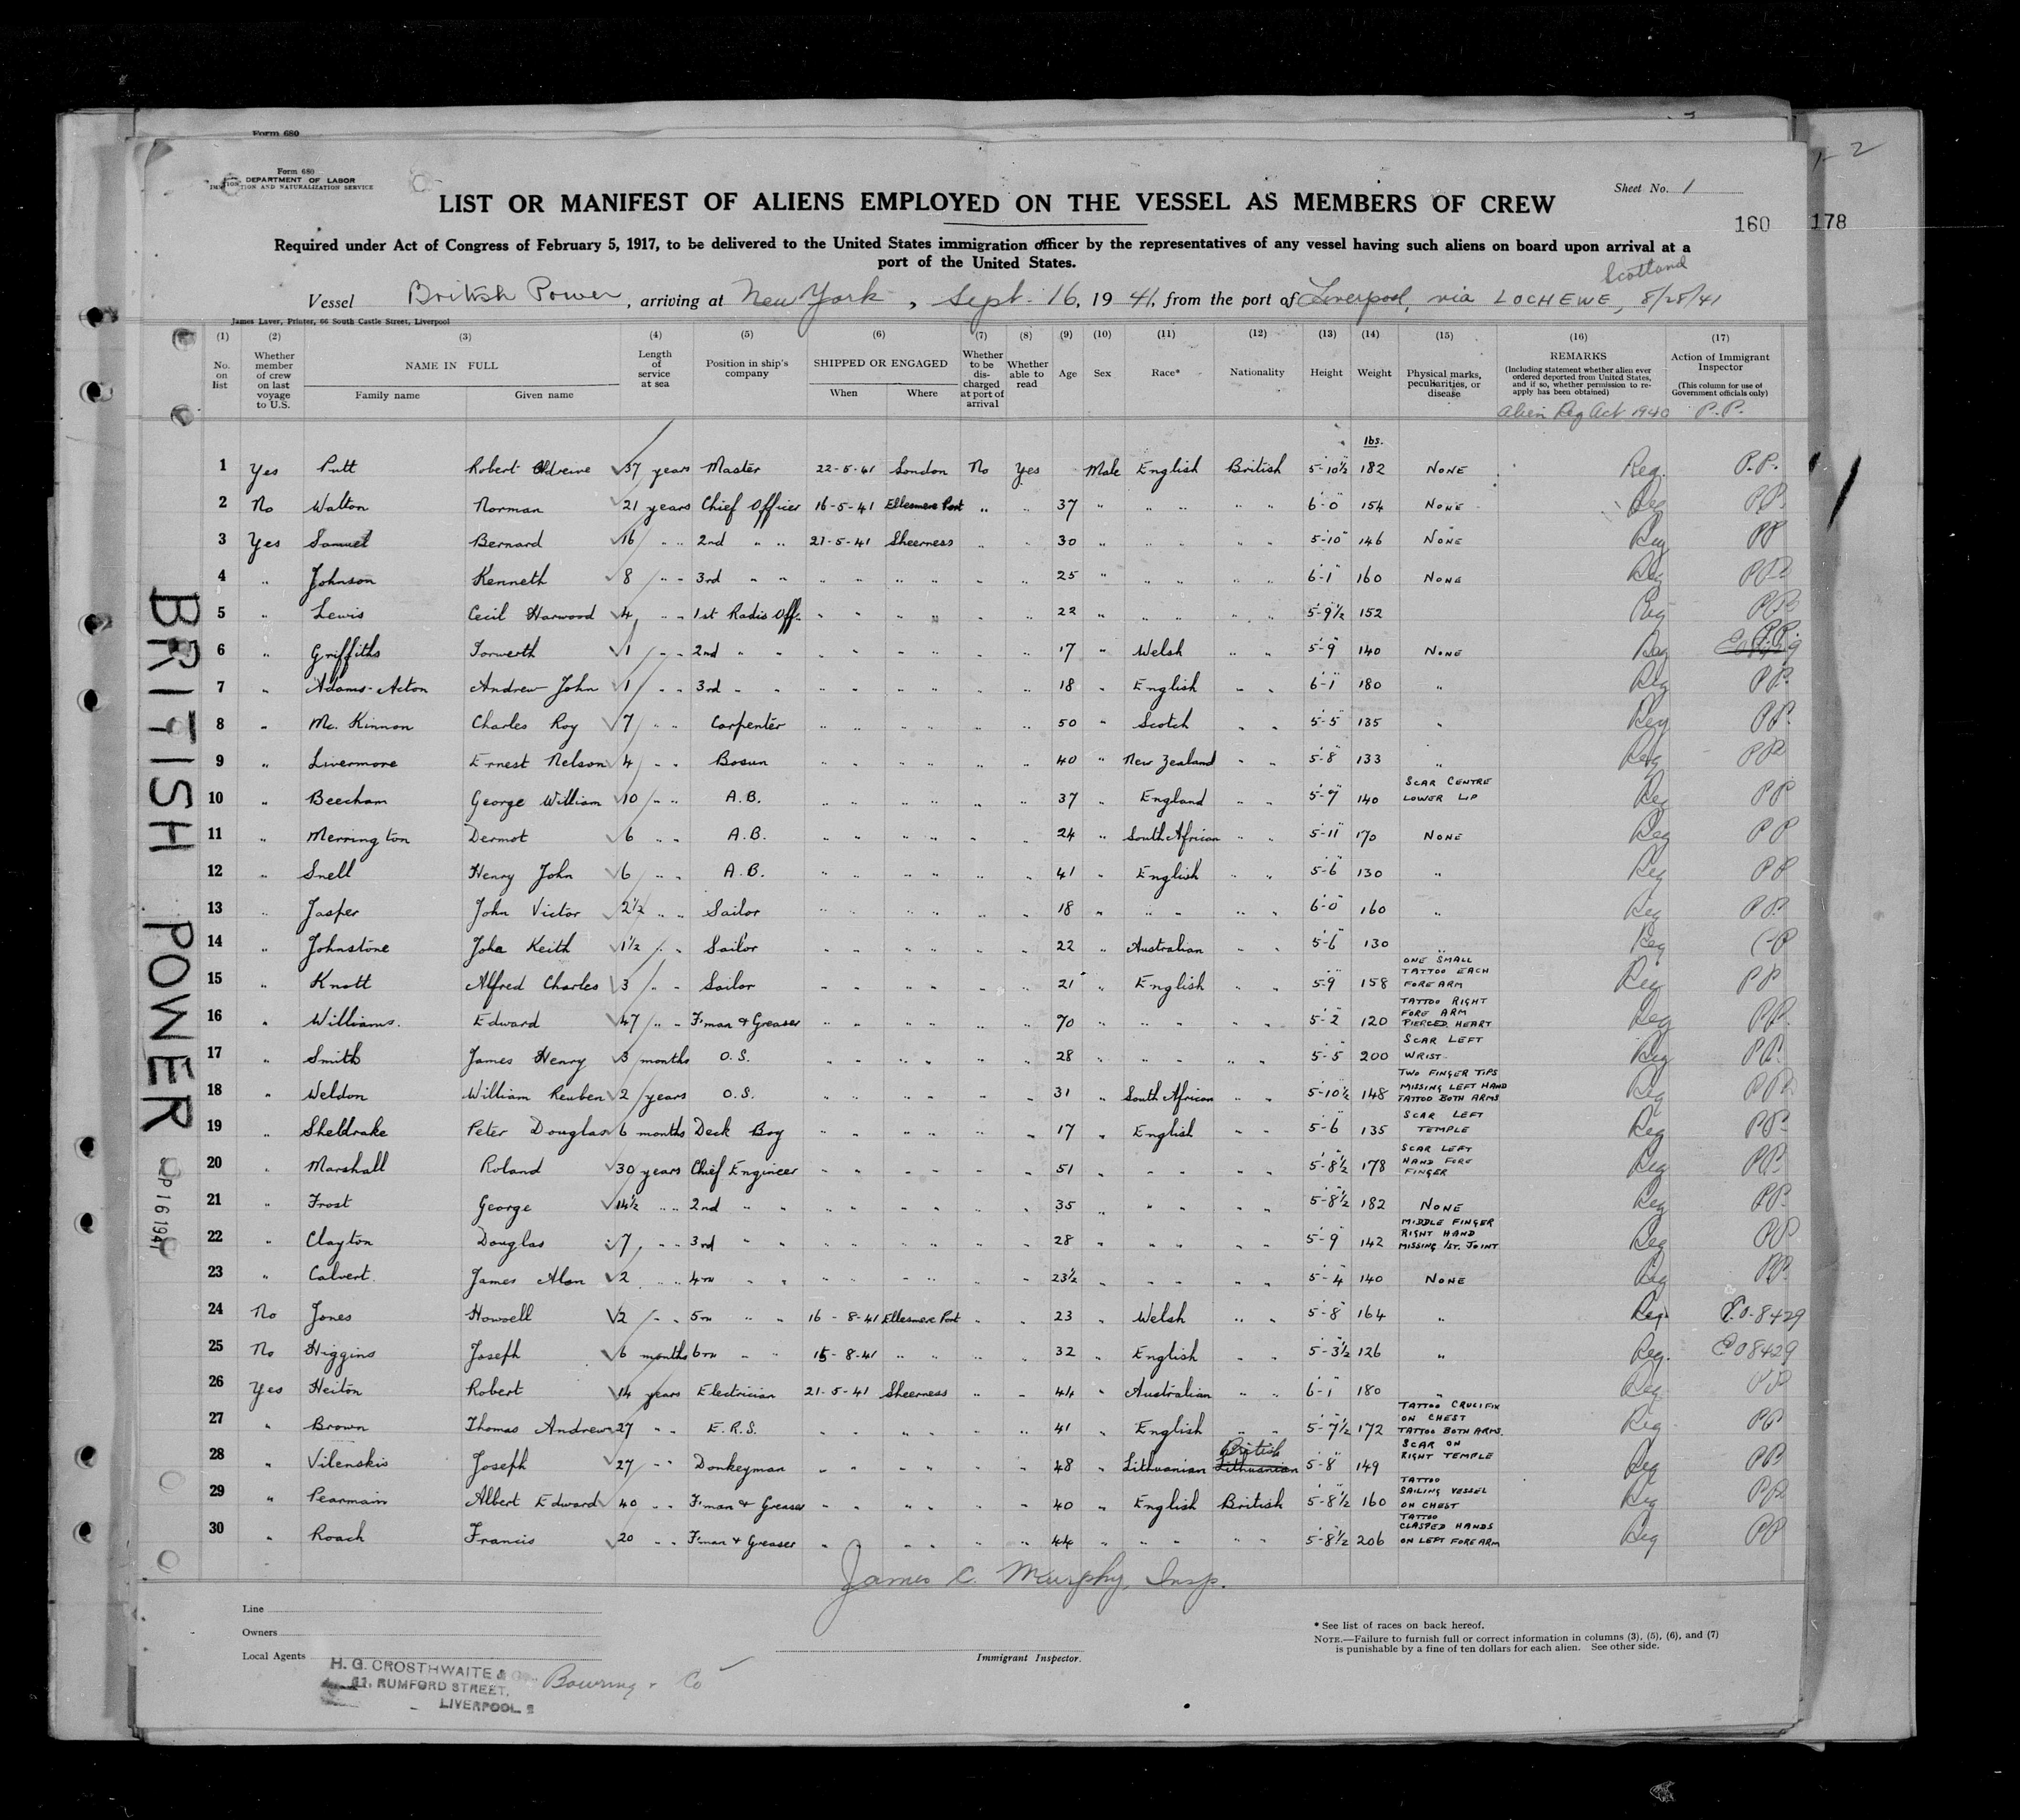 Form 680
Form 680
DEPARTMENT OF LABOR
IMMIGRATION AND NATURALIZATION SERVICE
Sheet No. 1
LIST OR MANIFEST OF ALIENS EMPLOYED ON THE VESSEL AS MEMBERS OF CREW
160 178
Required under Act of Congress of February 5, 1917, to be delivered to the United States immigration officer by the representatives of any vessel having such aliens on board upon arrival at a
port of the United States.
Scotland
Vessel British Power, arriving at New York, Sept. 16, 1941, from the port of Liverpool, via LOCHEWE, 8/28/41
James Laver, Printer, 66 South Castle Street, Liverpool
(1) (2) (3) (4) (5) (6) (7) (8) (9) (10) (11) (12) (13) (14) (15) (16) (17)
No. on list
Whether member of crew on last voyage to U.S.
NAME IN FULL
Family name Given name
Length of service at sea
Position in ship's company
SHIPPED OR ENGAGED
When Where
Whether to be discharged at port of arrival
Whether able to read
Age Sex Race* Nationality Height Weight
Physical marks, peculiarities, or disease
REMARKS
(Including statement whether alien ever ordered deported from United States, and if so, whether permission to reapply has been obtained)
Action of Immigrant Inspector
(This column for use of Government officials only)
Alien Reg Act 1940 P.P.
lbs.
1 Yes Putt Robert 37 years Master 22-5-41 London No Yes Male English British 5-10½ 182 NONE Reg. P.P.
2 No Walton Norman 21 years Chief Officer 16-5-41 Ellesmere Port " " 37 " " " " " 6-0 154 NONE Reg PP.
3 Yes Samuel Bernard 16 " " 2nd " " 21-5-41 Sheerness " " 30 " " " " " 5-10 146 NONE Reg PP
4 " Johnson Kenneth 8 " " 3rd " " " " " " " " 25 " " " " " 6-1 160 NONE Reg PP
5 " Lewis Cecil Harwood 4 " " 1st Radio Off. " " " " " " 22 " " " " " 5-9½ 152 Reg PP
6 " Griffiths Iorwerth 1 " " 2nd " " " " " " " " 17 " Welsh " " 5-9 140 NONE Reg P.P.
7 " Adams-Acton Andrew John 1 " " 3rd " " " " " " " " 18 " English " " 6-1 180 " Reg PP.
8 " Mc. Kinnon Charles Roy 7 " " Carpenter " " " " " " 50 " Scotch " " 5-5 135 " Reg PP.
9 " Livermore Ernest Nelson 4 " " Bosun " " " " " " 40 " New Zealand " " 5-8 133 " Reg PP
10 " Beecham George William 10 " " A.B. " " " " " " 37 " England " " 5-7 140 SCAR CENTRE LOWER LIP Reg PP
11 " Merrington Dermot 6 " " A.B. " " " " " " 24 " South African " " 5-11 170 NONE Reg PP
12 " Snell Henry John 6 " " A.B. " " " " " " 41 " English " " 5-6 130 " Reg PP
13 " Jasper John Victor 2½ " " Sailor " " " " " " 18 " " " " " 6-0 160 " Reg PP.
14 " Johnstone John Keith 1½ " " Sailor " " " " " " 22 " Australian " " 5-6 130 " Reg PP
15 " Knott Alfred Charles 3 " " Sailor " " " " " " 21 " English " " 5-9 158 ONE SMALL TATTOO EACH FOREARM Reg PP
16 " Williams. Edward 47 " " F'man & Greaser " " " " " " 70 " " " " " 5-2 120 TATTOO RIGHT FORE ARM PIERCED HEART Reg PP.
17 " Smith James Henry 3 months O.S. " " " " " " 28 " " " " " 5-5 200 SCAR LEFT WRIST Reg PP.
18 " Weldon William Reuben 2 years O.S. " " " " " " 31 " South African " " 5-10½ 148 TWO FINGER TIPS MISSING LEFT HAND TATTOO BOTH ARMS Reg PP.
19 " Sheldrake Peter Douglas 6 months Deck Boy " " " " " " 17 " English " " 5-6 135 SCAR LEFT TEMPLE Reg PP.
20 " Marshall Roland 30 years Chief Engineer " " " " " " 51 " " " " " 5-8½ 178 SCAR LEFT HAND FORE FINGER Reg PP.
21 " Frost George 14½ " " 2nd " " " " " " " " 35 " " " " " 5-8½ 182 NONE Reg PP.
22 " Clayton Douglas 7 " " 3rd " " " " " " " " 28 " " " " " 5-9 142 MIDDLE FINGER RIGHT HAND MISSING 1ST. JOINT Reg PP
23 " Calvert. James Alan 2 " " 4TH " " " " " " " " 23½ " " " " " 5-4 140 NONE Reg PP.
24 No Jones Howell 2 " " 5TH " " 16-8-41 Ellesmere Port " " 23 " Welsh " " 5-8 164 " Reg. E.O. 8429
25 No Higgins Joseph 6 months 6TH " " 15-8-41 " " " " 32 " English " " 5-3½ 126 " Reg. EO 8429
26 Yes Heiton Robert 14 years Electrician 21-5-41 Sheerness " " 44 " Australian " " 6-1 180 " Reg PP
27 " Brown Thomas Andrew 27 " " E.R.S. " " " " " " 41 " English " " 5-7½ 172 TATTOO CRUCIFIX ON CHEST TATTOO BOTH ARMS. Reg PP
28 " Vilenskis Joseph 27 " " Donkeyman " " " " " " 48 " Lithuanian Lithuanian British 5-8 149 SCAR ON RIGHT TEMPLE Reg PP
29 " Pearmain Albert Edward 40 " " F'man & Greaser " " " " " " 40 " English British 5-8½ 160 TATTOO SAILING VESSEL ON CHEST Reg PP
30 " Roach Francis 20 " " F'man & Greaser " " " " " " 44 " " " " " 5-8½ 206 TATTOO CLASPED HANDS ON LEFT FOREARM Reg PP
BRITISH POWER
SEP 16 1941
James C. Murphy, Insp.
Line
Owners
Local Agents
H. G. CROSTHWAITE & Co.
11, RUMFORD STREET,
LIVERPOOL 2
Bowring & Co
Immigrant Inspector.
* See list of races on back hereof.
NOTE.—Failure to furnish full or correct information in columns (3), (5), (6), and (7)
is punishable by a fine of ten dollars for each alien. See other side.